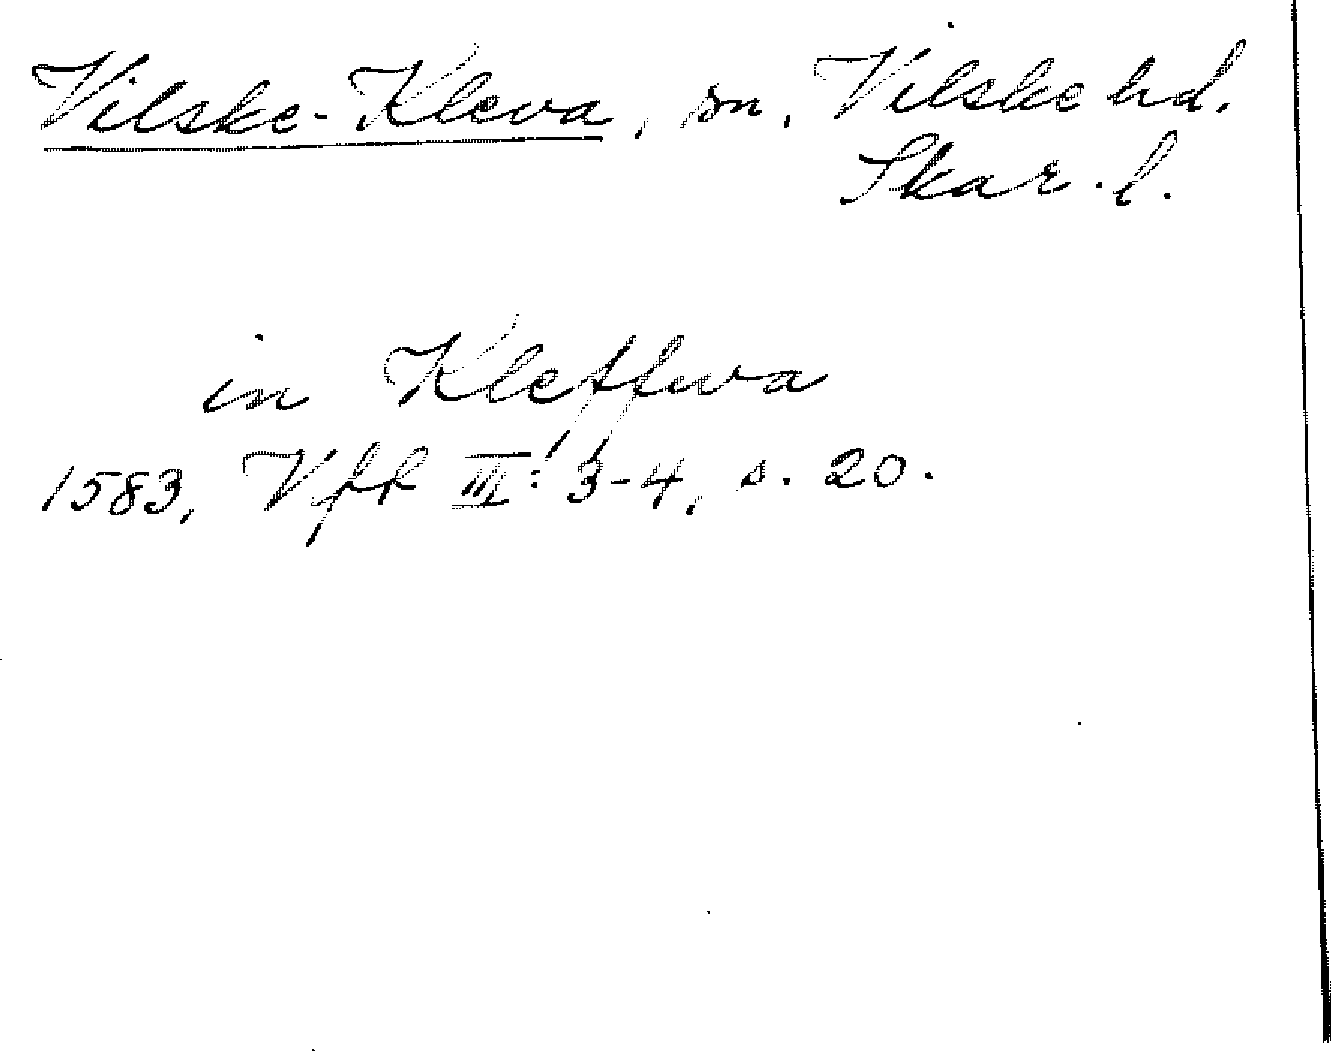 Vilske-Kleva, sn, Vilske hd.
Skar. l.
in Kleffwa
1583, Vfk III: 3-4, s. 20.